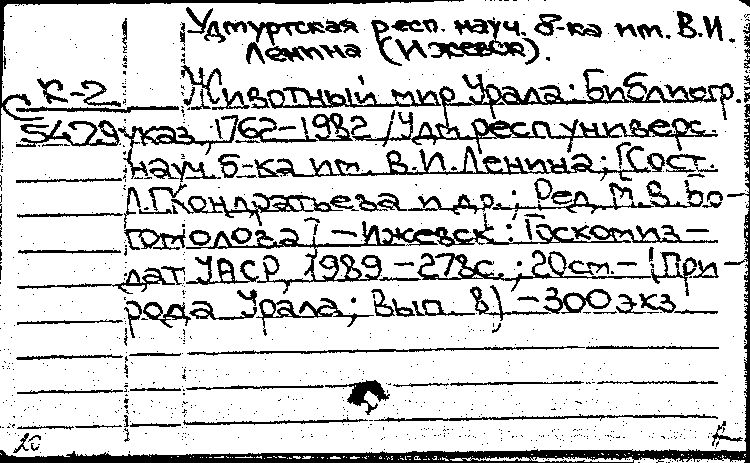 Удмуртская респ. науч. б-ка им. В.И.
Ленина (Ижевск).
С К-2 Животный мир Урала: Библиогр.
5479 указ., 1762-1982 / Удм. респ. универс.
науч. б-ка им. В.И. Ленина; [Сост.
Л.Г. Кондратьева и др.; Ред. М.В. Бо-
гомолова] - Ижевск: Госкомиз-
дат УАСР, 1989 - 278с.; 20см. - (При-
рода Урала; Вып. 8) - 300 экз